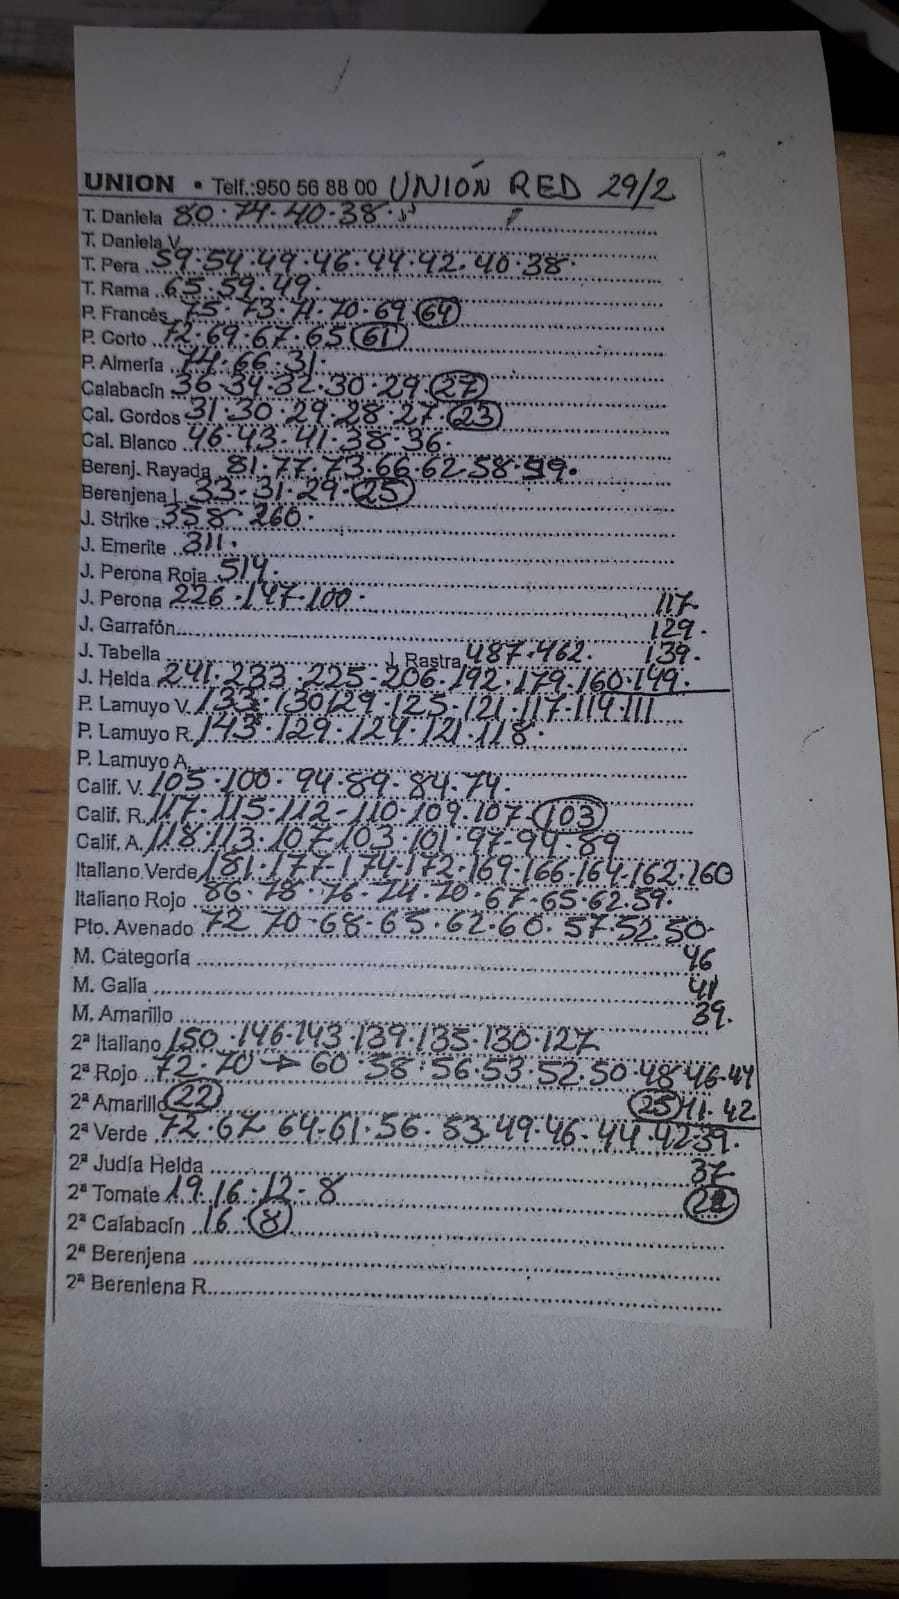 UNION • Telf.:950 56 88 00 UNIÓN RED 29/2
T. Daniela 80·74·40·38·
T. Daniela V.
T. Pera 59·54·49·46·44·42·40·38·
T. Rama 65·59·49·
P. Francés 75·73·71·70·69 (64)
P. Corto 72·69·67·65 (61)
P. Almería 74·66·31·
Calabacín 36-34·32·30·29 (27)
Cal. Gordos 31·30·29·28·27·(23)
Cal. Blanco 46·43-41·38·36·
Berenj. Rayada 81·77·73·66·62-58·
Berenjena L 33-31·29·(25)
J. Strike 358-260·
J. Emerite 311·
J. Perona Roja 514·
J. Perona 226·147-100· 117
J. Garrafón 129·
J. Tabella J. Rastra 487·462· 139·
J. Helda 241·233·225-206·192·179·160·149·
P. Lamuyo V. 133·130 129·125·121·117·119·111
P. Lamuyo R. 143·129·124·121·118·
P. Lamuyo A.
Calif. V. 105·100·94-89-84·74·
Calif. R. 117·115-112-110·109·107·(103)
Calif. A. 118·113·107-103·101·97-94·89
Italiano Verde 181·177-174-172·169·166·164·162·160
Italiano Rojo 86·78·76-74·70·67·65·62·59·
Pto. Avenado 72 70·68·65·62·60·57·52·50·
M. Categoría 46
M. Galía 41
M. Amarillo 39·
2ª Italiano 150·146·143·139·135·130·127
2ª Rojo 72·70→60·58·56·53·52·50·48·46·44
2ª Amarillo (22) (25) 41·42
2ª Verde 72·67 64·61·56·53·49·46·44·42·39·
2ª Judía Helda 37
2ª Tomate 19·16·12-8
2ª Calabacín 16·(8)
2ª Berenjena
2ª Berenjena R.